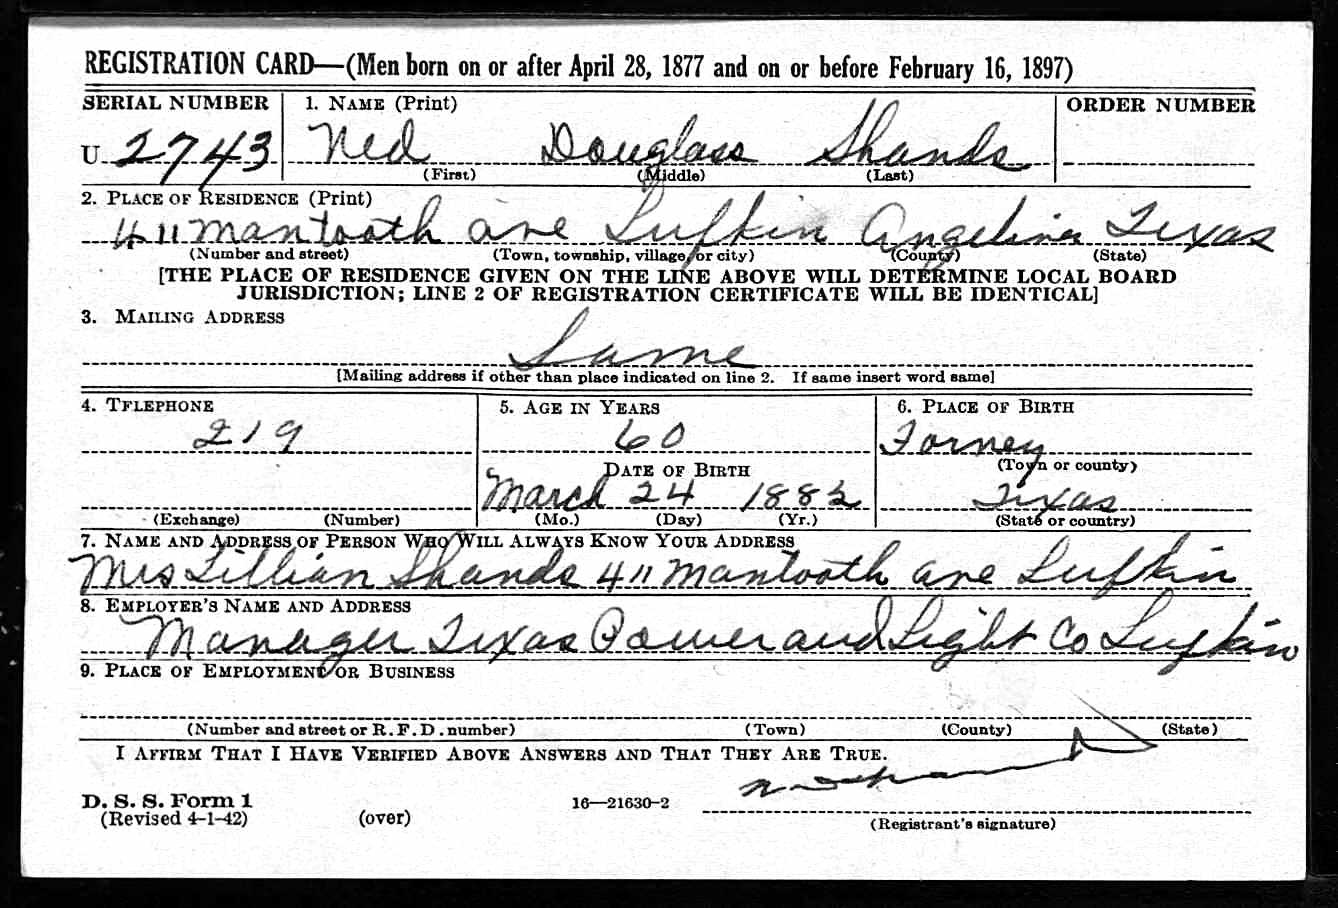 REGISTRATION CARD—(Men born on or after April 28, 1877 and on or before February 16, 1897)
SERIAL NUMBER 1. NAME (Print) ORDER NUMBER
U 2743 Ned Douglass Shands
(First) (Middle) (Last)
2. PLACE OF RESIDENCE (Print)
411 Mantooth ave Lufkin Angelina Texas
(Number and street) (Town, township, village, or city) (County) (State)
[THE PLACE OF RESIDENCE GIVEN ON THE LINE ABOVE WILL DETERMINE LOCAL BOARD
JURISDICTION; LINE 2 OF REGISTRATION CERTIFICATE WILL BE IDENTICAL]
3. MAILING ADDRESS
Same
[Mailing address if other than place indicated on line 2. If same insert word same]
4. TELEPHONE 5. AGE IN YEARS 6. PLACE OF BIRTH
219 60 Forney
DATE OF BIRTH (Town or county)
March 24 1882 Texas
(Exchange) (Number) (Mo.) (Day) (Yr.) (State or country)
7. NAME AND ADDRESS OF PERSON WHO WILL ALWAYS KNOW YOUR ADDRESS
Mrs Lillian Shands 411 Mantooth ave Lufkin
8. EMPLOYER'S NAME AND ADDRESS
Manager Texas Power and Light Co Lufkin
9. PLACE OF EMPLOYMENT OR BUSINESS
(Number and street or R. F. D. number) (Town) (County) (State)
I AFFIRM THAT I HAVE VERIFIED ABOVE ANSWERS AND THAT THEY ARE TRUE.
D. S. S. Form 1 16—21630-2
(Revised 4-1-42) (over)
(Registrant's signature)